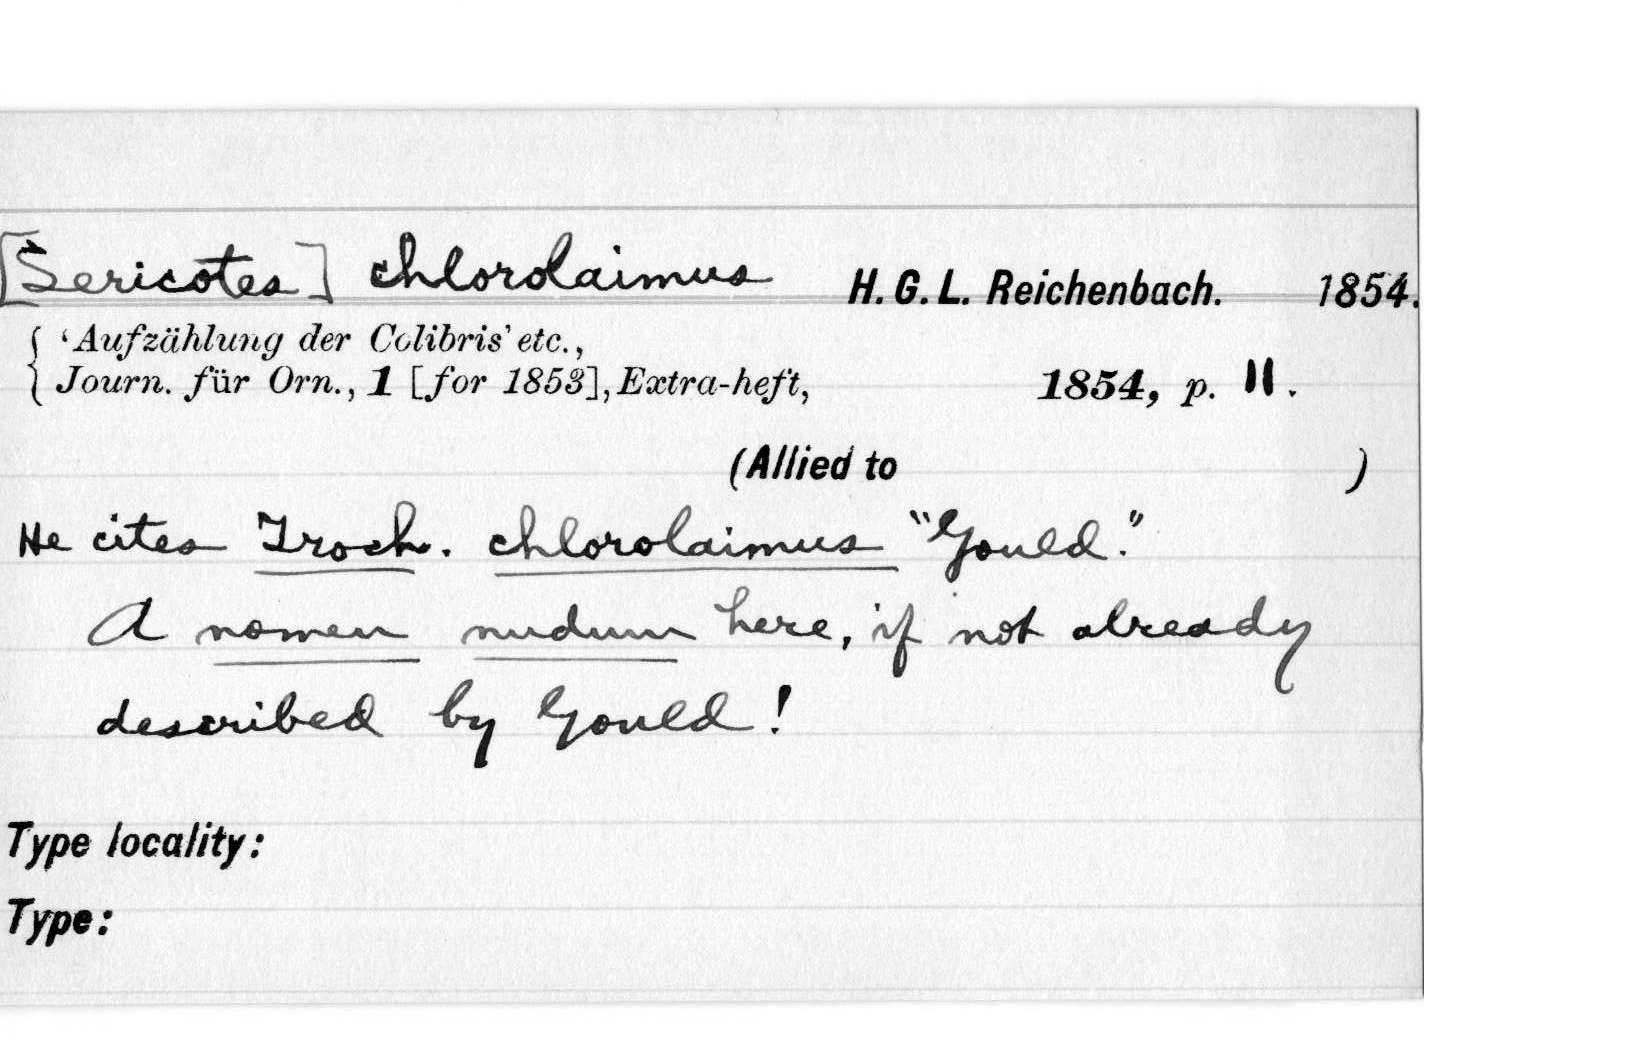 [Sericotes] chlorolaimus H. G. L. Reichenbach. 1854.
'Aufzählung der Colibris' etc.,
Journ. für Orn., 1 [for 1853], Extra-heft, 1854, p. 11.
(Allied to )
He cites Troch. chlorolaimus "Gould."
A nomen nudum here, if not already
described by Gould!
Type locality:
Type: